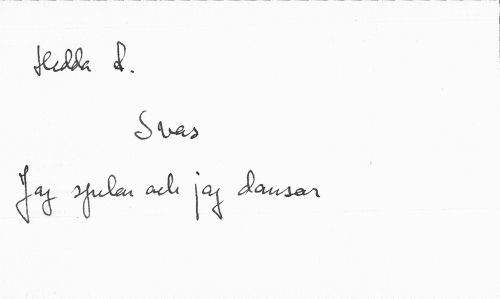 Hedda R.
Svar
Jag spelar och jag dansar